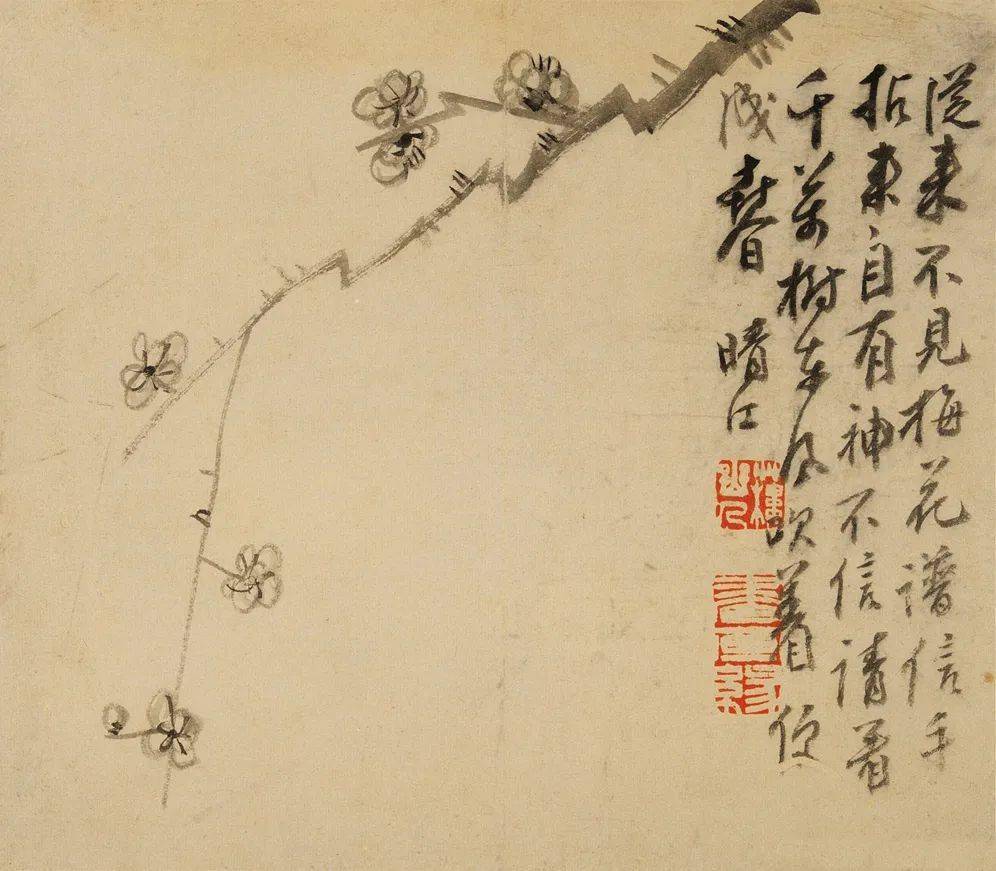 從來不見梅花譜信手
拈來自有神不信請看
千萬樹東風吹着便
成春 晴江